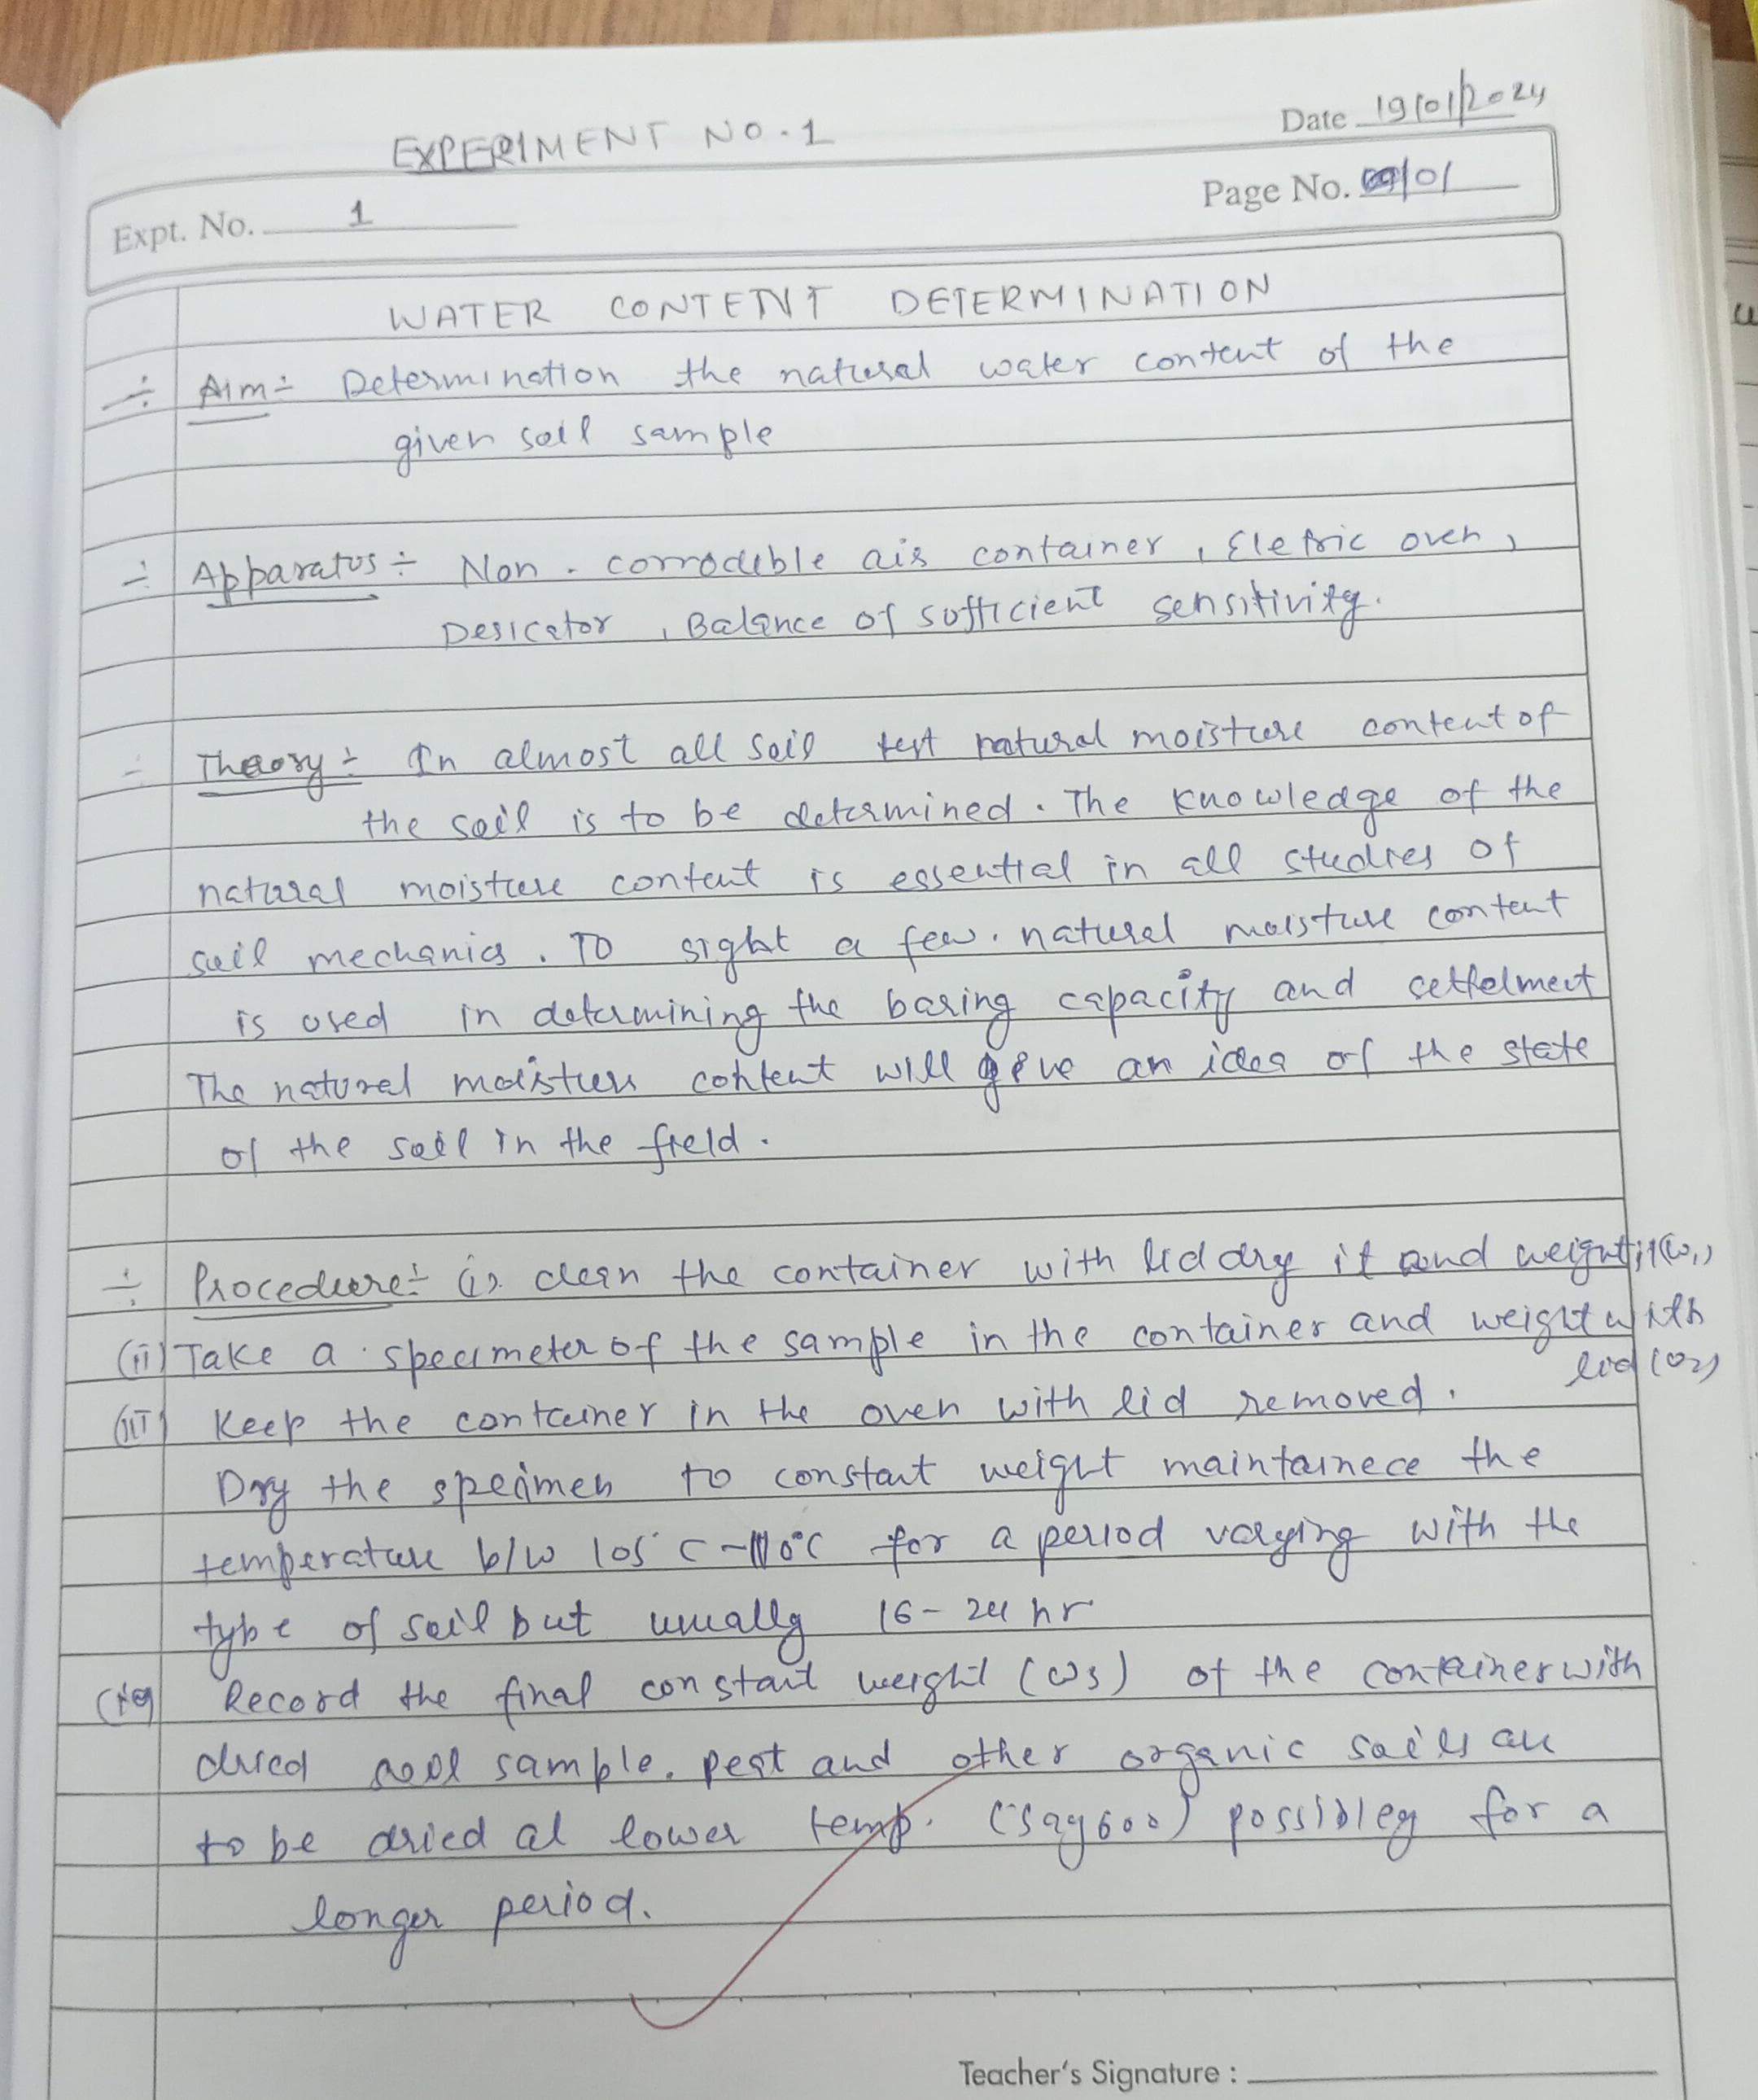 EXPERIMENT NO.1
Date 19/01/2024
Expt. No. 1
Page No. 01
WATER CONTENT DETERMINATION
÷ Aim÷ Determination the natural water content of the
given soil sample
÷ Apparatus÷ Non-corrodible air container, Eletric oven,
Desicator, Balance of sufficient sensitivity.
÷ Theory÷ In almost all soil test natural moisture content of
the soil is to be determined. The knowledge of the
natural moisture content is essential in all studies of
soil mechanics. To sight a few. natural moisture content
is used in determining the baring capacity and settelment
The natural moisture content will give an idea of the state
of the soil in the field.
÷ Procedure÷ (i) clean the container with lid dry it and weight it (ω1)
(ii) Take a specimeter of the sample in the container and weight with
lid (ω2)
(iii) Keep the container in the oven with lid removed.
Dry the specimen to constant weight maintainece the
temperature b/w 105°C-110°C for a period varying with the
type of soil but usually 16-24 hr
(iv) Record the final constant weight (ω3) of the container with
dried soil sample. peat and other organic soils are
to be dried at lower temp. (say 600) possibley for a
longer period.
Teacher's Signature :